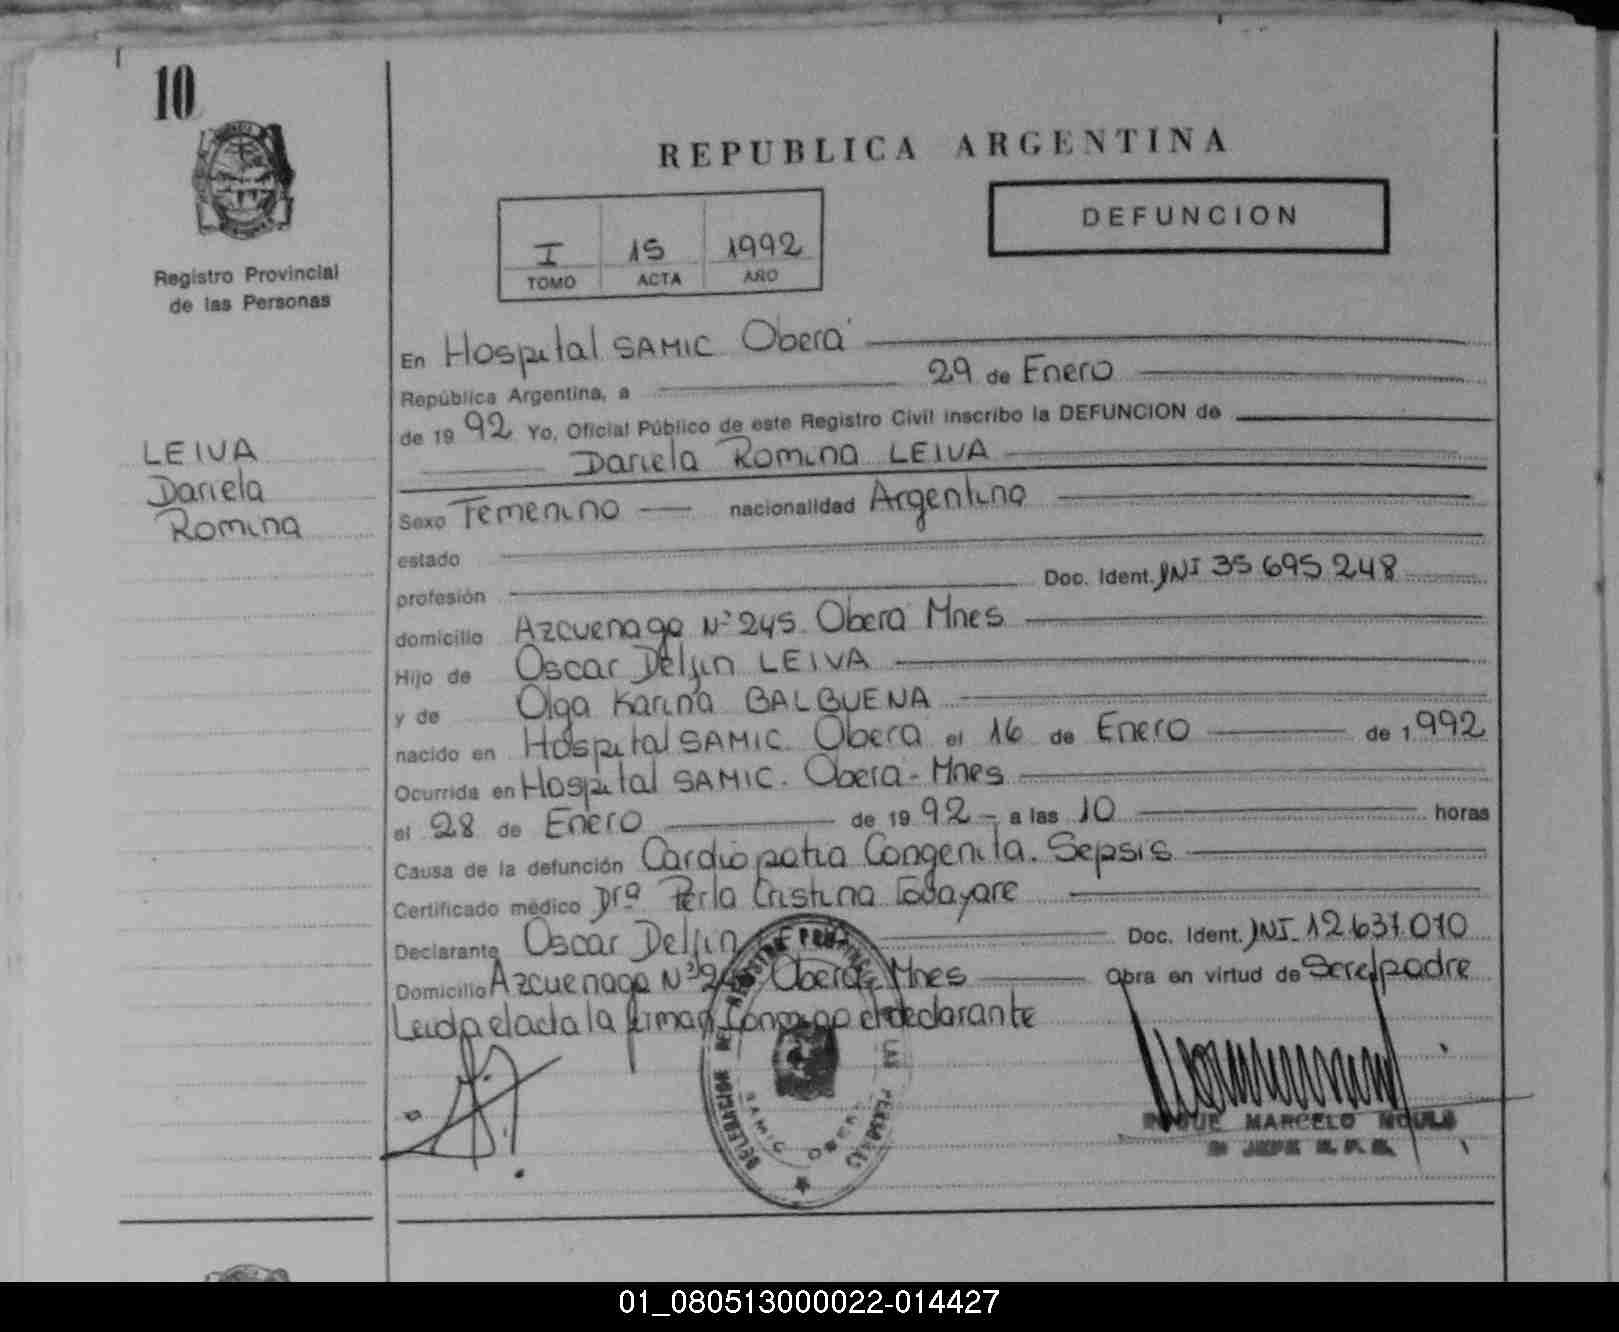 10
REPUBLICA ARGENTINA
DEFUNCION
I 15 1992
TOMO ACTA AÑO
Registro Provincial
de las Personas
LEIVA
Dariela
Romina
En Hospital SAMIC Oberá
República Argentina, a 29 de Enero
de 19 92 Yo, Oficial Público de este Registro Civil inscribo la DEFUNCION de
Dariela Romina LEIVA
Sexo Femenino nacionalidad Argentina
estado
profesión Doc. Ident. DNI 35 695 248
domicilio Azcuenaga Nº 245 Oberá Mnes
Hijo de Oscar Delfin LEIVA
y de Olga Karina BALBUENA
nacido en Hospital SAMIC. Oberá el 16 de Enero de 1.992
Ocurrida en Hospital SAMIC. Oberá - Mnes
el 28 de Enero de 19 92 - a las 10 horas
Causa de la defunción Cardiopatia Congenita. Sepsis
Certificado médico Drª Perla Cristina
Declarante Oscar Delfin Doc. Ident. DNI 12.631.010
Domicilio Azcuenaga Nº Oberá Mnes Obra en virtud de Ser el padre
Leida el acta la firman conmigo el declarante
DELEGACION DEL REGISTRO PROVINCIAL LAS PERSONAS
SAMIC OBERA
ROQUE MARCELO
JEFE R. P. P.
01_080513000022-014427